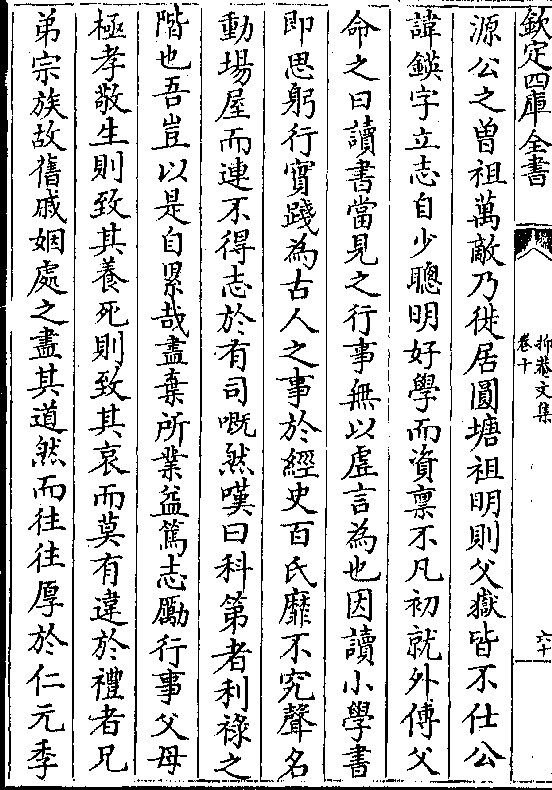 欽定四庫全書
抑菴文集
卷十
六十
源公之曽祖萬敵乃徙居圓塘祖明則父嶽皆不仕公
諱鍈字立志自少聰明好學而資禀不凡初就外傅父
命之曰讀書當見之行事無以虛言為也因讀小學書
即思躬行實踐為古人之事於經史百氏靡不究聲名
動塲屋而連不得志於有司嘅然嘆曰科第者利祿之
階也吾豈以是自累哉盡棄所業益篤志勵行事父母
極孝敬生則致其養死則致其哀而莫有違於禮者兄
弟宗族故舊戚姻處之盡其道然而往往厚於仁元季